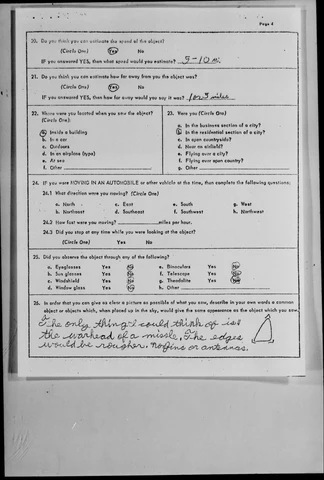 Page 4
20. Do you think you can estimate the speed of the object?
(Circle One) Yes No
IF you answered YES, then what speed would you estimate? 5-10 mi.
21. Do you think you can estimate how far away from you the object was?
(Circle One) Yes No
IF you answered YES, then how far away would you say it was? 1 or 2 miles
22. Where were you located when you saw the object?
(Circle One)
a. Inside a building
b. In a car
c. Outdoors
d. In an airplane (type)
e. At sea
f. Other
23. Were you (Circle One)
a. In the business section of a city?
b. In the residential section of a city?
c. In open countryside?
d. Near an airfield?
e. Flying over a city?
f. Flying over open country?
g. Other
24. IF you were MOVING IN AN AUTOMOBILE or other vehicle at the time, then complete the following questions:
24.1 What direction were you moving? (Circle One)
a. North c. East e. South g. West
b. Northeast d. Southeast f. Southwest h. Northwest
24.2 How fast were you moving? miles per hour.
24.3 Did you stop at any time while you were looking at the object?
(Circle One) Yes No
25. Did you observe the object through any of the following?
a. Eyeglasses Yes No e. Binoculars Yes No
b. Sun glasses Yes No f. Telescope Yes No
c. Windshield Yes No g. Theodolite Yes No
d. Window glass Yes No h. Other
26. In order that you can give as clear a picture as possible of what you saw, describe in your own words a common
object or objects which, when placed up in the sky, would give the same appearance as the object which you saw.
The only thing I could think of is
the warhead of a missle. The edges
would be rougher, no fins or antennas.